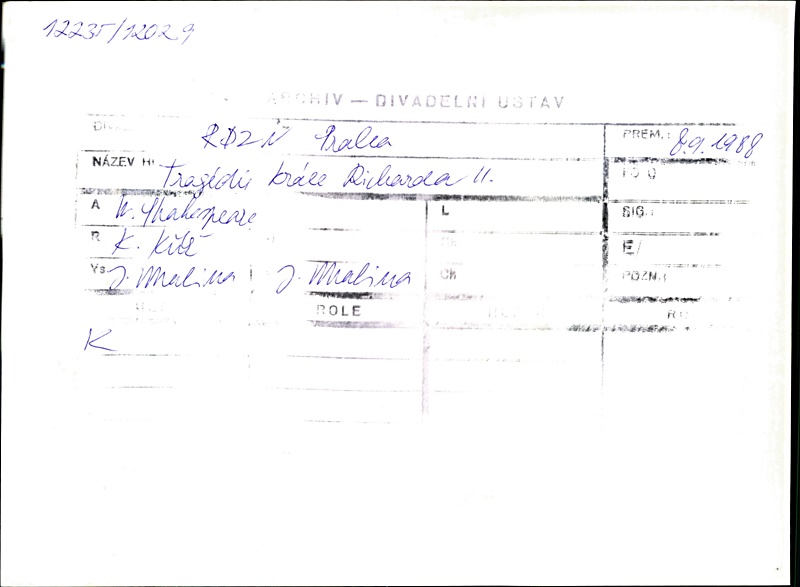 12235/12029
ARCHIV — DIVADELNÍ ÚSTAV
RDZN Praha PREM.: 8.9.1988
NÁZEV Tragédie krále Richarda II.
A W. Shakespeare L SIG.:
R K. Kříž E/
J. Malina J. Malina Ch POZN.:
ROLE
K